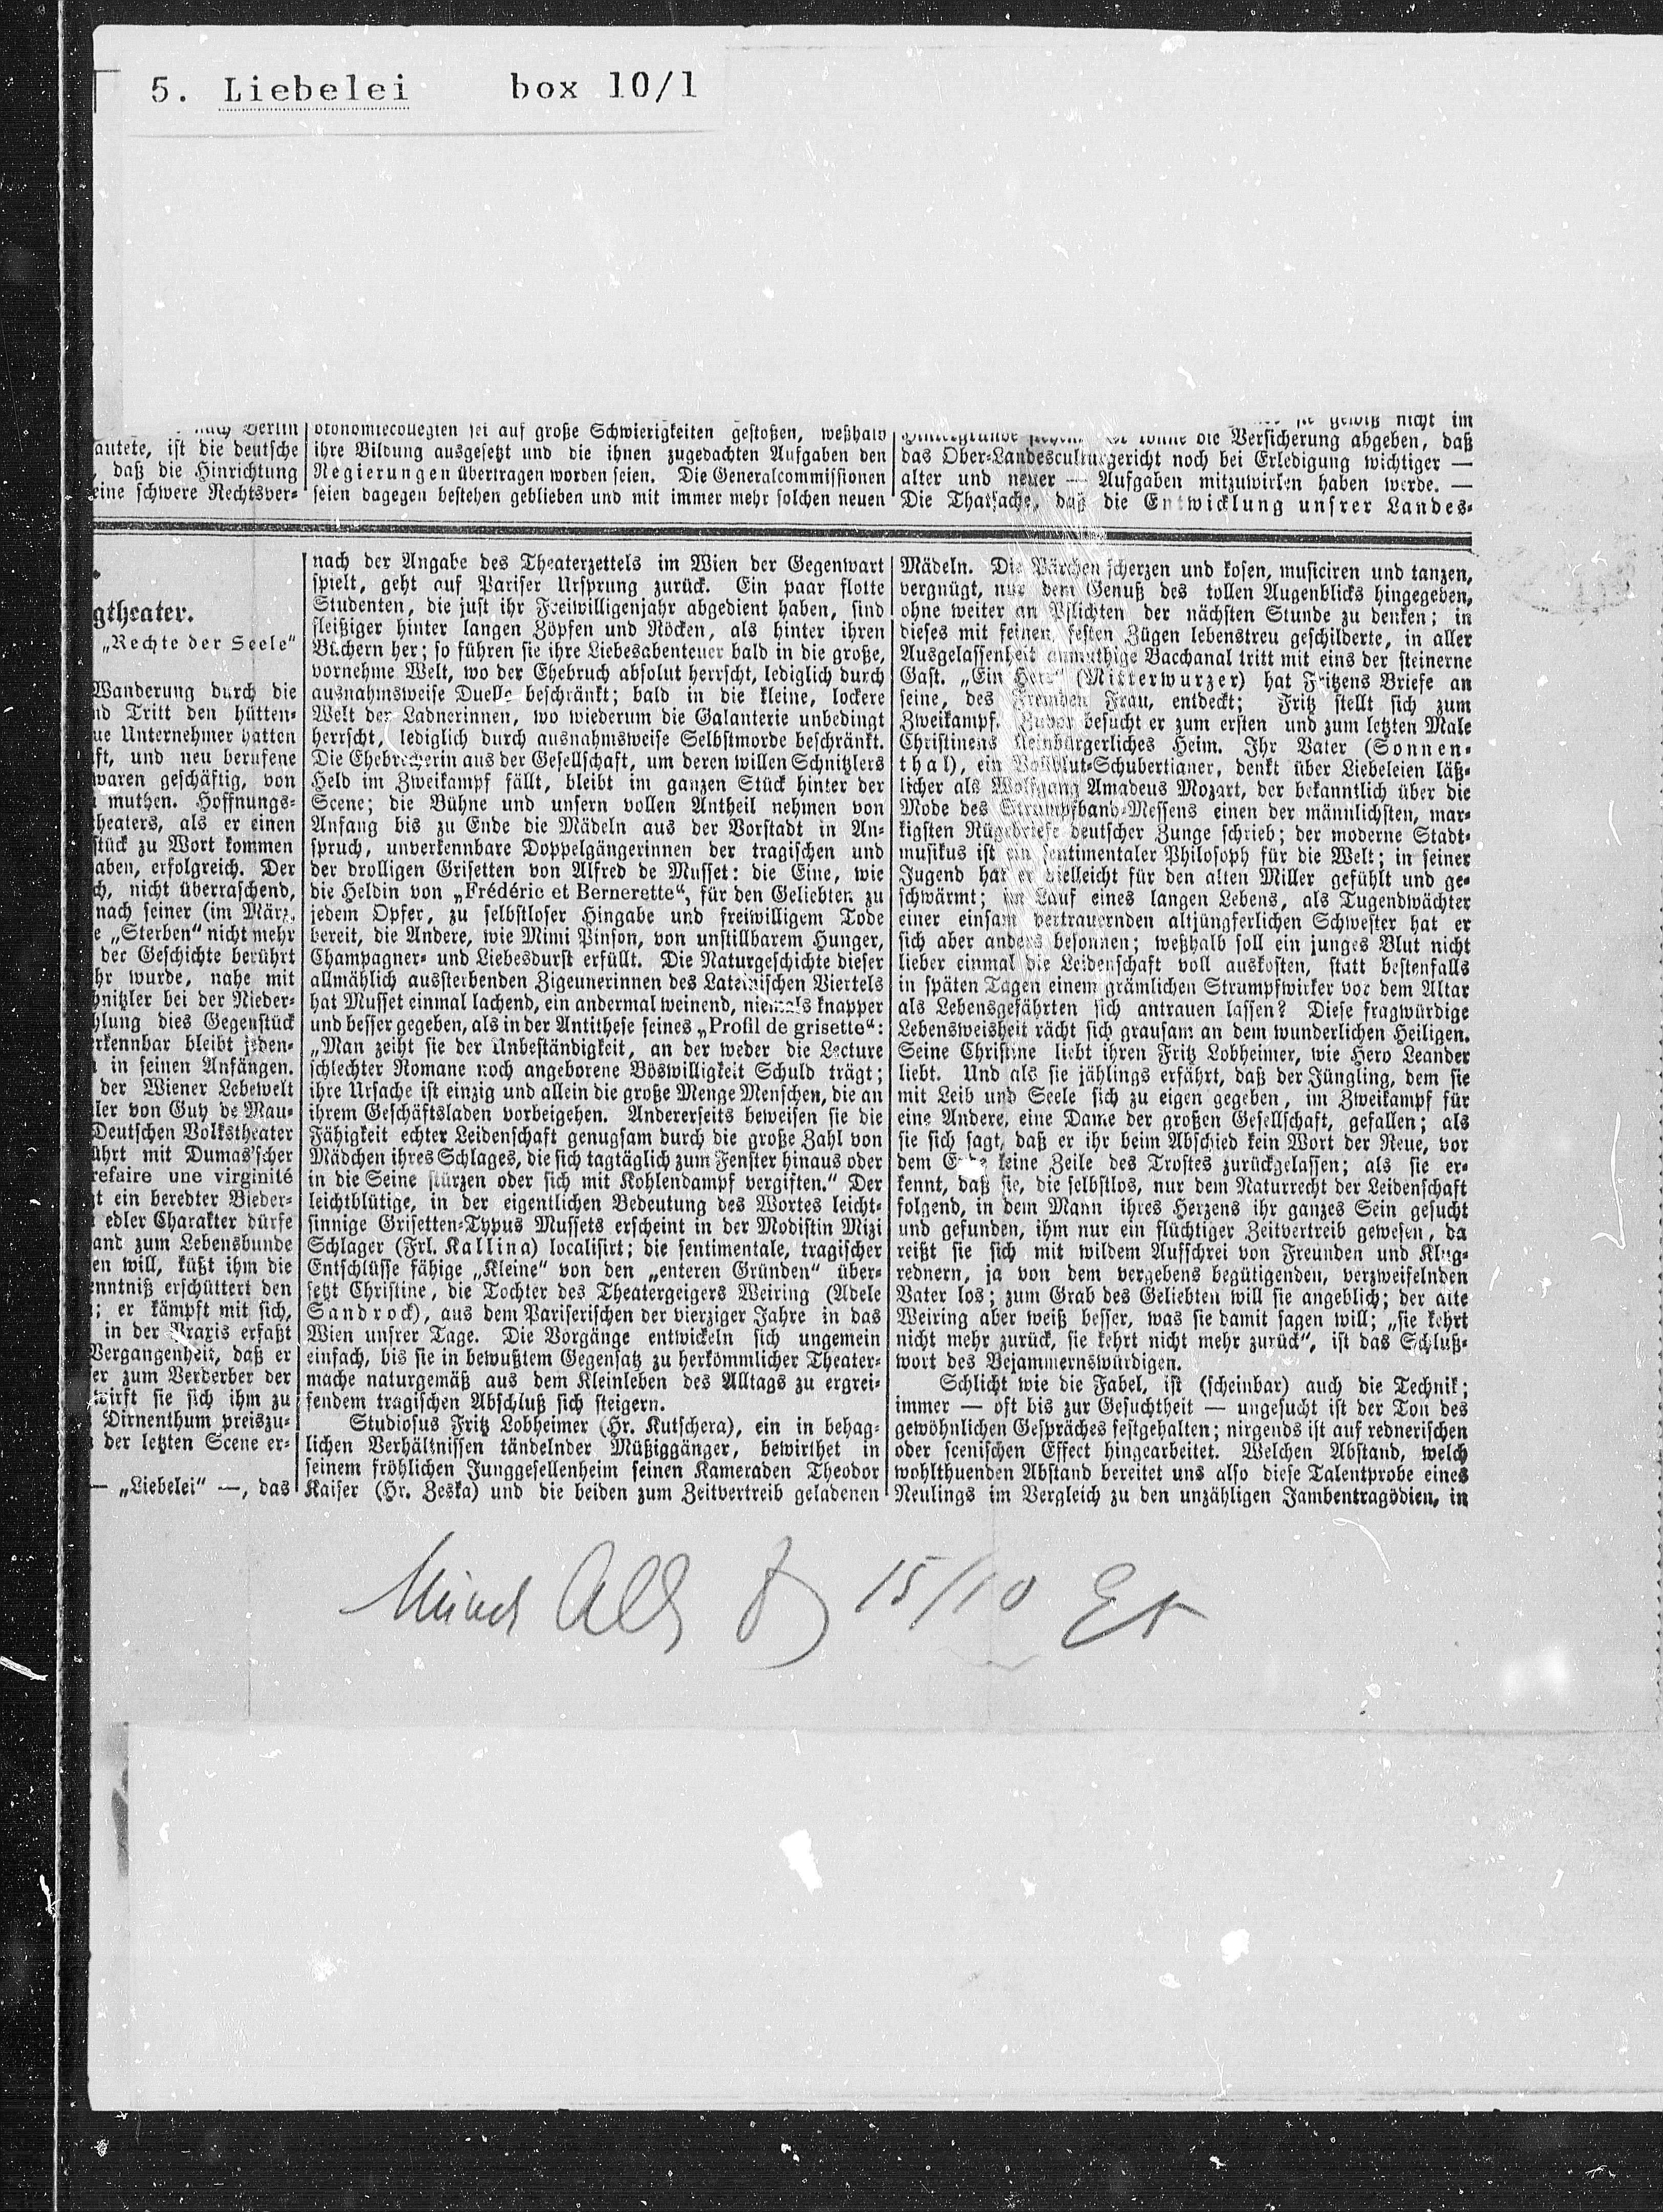 5. Liebelei box 10/1
nach Berlin
autete, ist die deutsche
, daß die Hinrichtung
eine schwere Rechtsver-
ökonomiecollegien sei auf große Schwierigkeiten gestoßen, weßhalb
ihre Bildung ausgesetzt und die ihnen zugedachten Aufgaben den
Regierungen übertragen worden seien. Die Generalcommissionen
seien dagegen bestehen geblieben und mit immer mehr solchen neuen
sie gewiß nicht im
die Versicherung abgeben, daß
das Ober-Landesculturgericht noch bei Erledigung wichtiger —
alter und neuer — Aufgaben mitzuwirken haben werde. —
Die Thatsache, daß die Entwicklung unsrer Landes-
gtheater.
„Rechte der Seele"
Wanderung durch die
nd Tritt den hütten-
ue Unternehmer hatten
ft, und neu berufene
waren geschäftig, von
muthen. Hoffnungs-
heaters, als er einen
stück zu Wort kommen
aben, erfolgreich. Der
ch, nicht überraschend,
nach seiner (im März
e „Sterben" nicht mehr
der Geschichte berührt
hr wurde, nahe mit
hnitzler bei der Nieder-
hlung dies Gegenstück
rkennbar bleibt jeden-
in seinen Anfängen.
der Wiener Lebewelt
ler von Guy de Mau-
Deutschen Volkstheater
ührt mit Dumas'scher
refaire une virginité
t ein beredter Bieder-
edler Charakter dürfe
and zum Lebensbunde
en will, küßt ihm die
enntniß erschüttert den
; er kämpft mit sich,
in der Praxis erfaßt
Vergangenheit, daß er
er zum Verderber der
wirft sie sich ihm zu
Dirnenthum preiszu-
der letzten Scene er-
— „Liebelei" —, das
nach der Angabe des Theaterzettels im Wien der Gegenwart
spielt, geht auf Pariser Ursprung zurück. Ein paar flotte
Studenten, die just ihr Freiwilligenjahr abgedient haben, sind
fleißiger hinter langen Zöpfen und Röcken, als hinter ihren
Büchern her; so führen sie ihre Liebesabenteuer bald in die große,
vornehme Welt, wo der Ehebruch absolut herrscht, lediglich durch
ausnahmsweise Duelle beschränkt; bald in die kleine, lockere
Welt der Ladnerinnen, wo wiederum die Galanterie unbedingt
herrscht, lediglich durch ausnahmsweise Selbstmorde beschränkt.
Die Ehebrecherin aus der Gesellschaft, um deren willen Schnitzlers
Held im Zweikampf fällt, bleibt im ganzen Stück hinter der
Scene; die Bühne und unsern vollen Antheil nehmen von
Anfang bis zu Ende die Mädeln aus der Vorstadt in An-
spruch, unverkennbare Doppelgängerinnen der tragischen und
der drolligen Grisetten von Alfred de Musset: die Eine, wie
die Heldin von „Frédéric et Bernerette", für den Geliebten zu
jedem Opfer, zu selbstloser Hingabe und freiwilligem Tode
bereit, die Andere, wie Mimi Pinson, von unstillbarem Hunger,
Champagner- und Liebesdurst erfüllt. Die Naturgeschichte dieser
allmählich aussterbenden Zigeunerinnen des Lateinischen Viertels
hat Musset einmal lachend, ein andermal weinend, niemals knapper
und besser gegeben, als in der Antithese seines „Profil de grisette":
„Man zeiht sie der Unbeständigkeit, an der weder die Lecture
schlechter Romane noch angeborene Böswilligkeit Schuld trägt;
ihre Ursache ist einzig und allein die große Menge Menschen, die an
ihrem Geschäftsladen vorbeigehen. Andererseits beweisen sie die
Fähigkeit echter Leidenschaft genugsam durch die große Zahl von
Mädchen ihres Schlages, die sich tagtäglich zum Fenster hinaus oder
in die Seine stürzen oder sich mit Kohlendampf vergiften." Der
leichtblütige, in der eigentlichen Bedeutung des Wortes leicht-
sinnige Grisetten-Typus Mussets erscheint in der Modistin Mizi
Schlager (Frl. Kallina) localisirt; die sentimentale, tragischer
Entschlüsse fähige „Kleine" von den „enteren Gründen" über-
setzt Christine, die Tochter des Theatergeigers Weiring (Adele
Sandrock), aus dem Pariserischen der vierziger Jahre in das
Wien unsrer Tage. Die Vorgänge entwickeln sich ungemein
einfach, bis sie in bewußtem Gegensatz zu herkömmlicher Theater-
mache naturgemäß aus dem Kleinleben des Alltags zu ergrei-
fendem tragischen Abschluß sich steigern.
Studiosus Fritz Lobheimer (Hr. Kutschera), ein in behag-
lichen Verhältnissen tändelnder Müßiggänger, bewirthet in
seinem fröhlichen Junggesellenheim seinen Kameraden Theodor
Kaiser (Hr. Zeska) und die beiden zum Zeitvertreib geladenen
Mädeln. Die Pärchen scherzen und kosen, musiciren und tanzen,
vergnügt, nur dem Genuß des tollen Augenblicks hingegeben,
ohne weiter an Pflichten der nächsten Stunde zu denken; in
dieses mit feinen, festen Zügen lebenstreu geschilderte, in aller
Ausgelassenheit anmuthige Bacchanal tritt mit eins der steinerne
Gast. „Ein Herr" (Mitterwurzer) hat Fritzens Briefe an
seine, des Fremden Frau, entdeckt; Fritz stellt sich zum
Zweikampf. Zuvor besucht er zum ersten und zum letzten Male
Christinens kleinbürgerliches Heim. Ihr Vater (Sonnen-
thal), ein Vollblut-Schubertianer, denkt über Liebeleien läß-
licher als Wolfgang Amadeus Mozart, der bekanntlich über die
Mode des Strumpfband-Messens einen der männlichsten, mar-
kigsten Rügebriefe deutscher Zunge schrieb; der moderne Stadt-
musikus ist ein sentimentaler Philosoph für die Welt; in seiner
Jugend hat er vielleicht für den alten Miller gefühlt und ge-
schwärmt; im Lauf eines langen Lebens, als Tugendwächter
einer einsam vertrauernden altjüngferlichen Schwester hat er
sich aber anders besonnen; weßhalb soll ein junges Blut nicht
lieber einmal die Leidenschaft voll auskosten, statt bestenfalls
in späten Tagen einem grämlichen Strumpfwirker vor dem Altar
als Lebensgefährten sich antrauen lassen? Diese fragwürdige
Lebensweisheit rächt sich grausam an dem wunderlichen Heiligen.
Seine Christine liebt ihren Fritz Lobheimer, wie Hero Leander
liebt. Und als sie jählings erfährt, daß der Jüngling, dem sie
mit Leib und Seele sich zu eigen gegeben, im Zweikampf für
eine Andere, eine Dame der großen Gesellschaft, gefallen; als
sie sich sagt, daß er ihr beim Abschied kein Wort der Reue, vor
dem Ende keine Zeile des Trostes zurückgelassen; als sie er-
kennt, daß sie, die selbstlos, nur dem Naturrecht der Leidenschaft
folgend, in dem Mann ihres Herzens ihr ganzes Sein gesucht
und gefunden, ihm nur ein flüchtiger Zeitvertreib gewesen, da
reißt sie sich mit wildem Aufschrei von Freunden und Klug-
rednern, ja von dem vergebens begütigenden, verzweifelnden
Vater los; zum Grab des Geliebten will sie angeblich; der alte
Weiring aber weiß besser, was sie damit sagen will; „sie kehrt
nicht mehr zurück, sie kehrt nicht mehr zurück", ist das Schluß-
wort des Bejammernswürdigen.
Schlicht wie die Fabel, ist (scheinbar) auch die Technik;
immer — oft bis zur Gesuchtheit — ungesucht ist der Ton des
gewöhnlichen Gespräches festgehalten; nirgends ist auf rednerischen
oder scenischen Effect hingearbeitet. Welchen Abstand, welch
wohlthuenden Abstand bereitet uns also diese Talentprobe eines
Neulings im Vergleich zu den unzähligen Jambentragödien, in
15/10